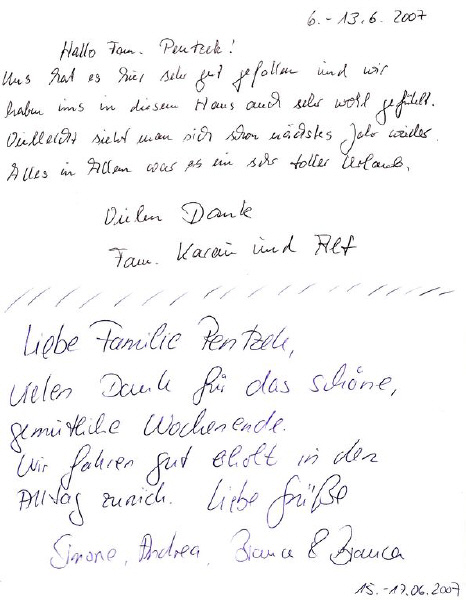 6. - 13.6. 2007
Hallo Fam. Pentzek!
Uns hat es hier sehr gut gefallen und wir
haben uns in diesem Haus auch sehr wohl gefühlt.
Vielleicht sieht man sich schon nächstes Jahr wieder.
Alles in Allem war es ein sehr toller Urlaub.
Vielen Dank
Fam. Karain und Alf
Liebe Familie Pentzek,
vielen Dank für das schöne,
gemütliche Wochenende.
Wir fahren gut erholt in den
Alltag zurück. Liebe Grüße
Simone, Andrea, Bianca & Bianca
15. - 17.06.2007